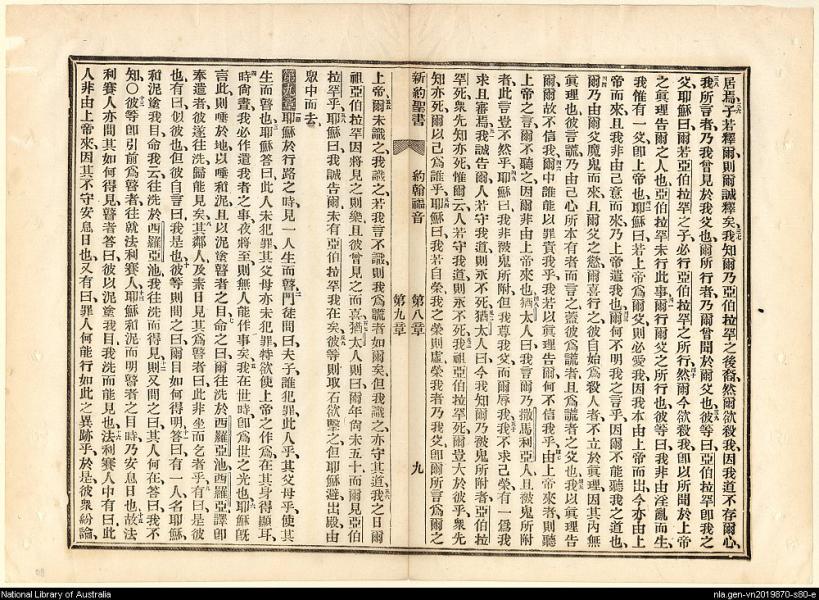 居焉子若釋爾則爾誠釋矣我知爾乃亞伯拉罕之後裔然爾欲殺我因我道不存爾心
我所言者乃我曾見於我父也爾所行者乃爾曾聞於爾父也彼等曰亞伯拉罕卽我之
父耶穌曰爾若亞伯拉罕之子必行亞伯拉罕之所行然爾今欲殺我卽以所聞於上帝
之眞理告爾之人也亞伯拉罕未行此事爾行爾父之所行也彼等曰我非由淫亂而生
我惟有一父卽上帝也耶穌曰若上帝爲爾父則必愛我因我本由上帝而出今亦由上
帝而來且我非由己意而來乃上帝遣我也爾何不明我之言乎因爾不能聽我之道也
爾乃由爾父魔鬼而來且爾父之慾爾喜行之彼自始爲殺人者不立於眞理因其內無
眞理也彼言謊乃由己心所本有者而言之蓋彼爲謊者且爲謊者之父也我以眞理告
爾爾故不信我爾中誰能以罪責我乎我若以眞理告爾何不信我乎由上帝來者則聽
上帝之言爾不聽之因爾非由上帝來也猶太人曰我言爾乃撒馬利亞人且被鬼所附
者此言豈不然乎耶穌曰我非被鬼所附但我尊我父而爾辱我我不求己榮有一爲我
求且審焉我誠告爾人若守我道則永不死猶太人曰今我知爾乃被鬼所附者亞伯拉
罕死衆先知亦死惟爾云人若守我道則永不死我祖亞伯拉罕死爾豈大於彼乎衆先
知亦死爾以己爲誰乎耶穌曰我若自榮我之榮則虛榮我者乃我父卽爾所言爲爾之
新約聖書
約翰福音
第八章
第九章
九
上帝爾未識之我識之若我言不識則我爲謊者如爾矣但我識之亦守其道我之日爾
祖亞伯拉罕因將見之則樂且彼曾見之而喜猶太人則曰爾年尙未五十而爾見亞伯
拉罕乎耶穌曰我誠告爾未有亞伯拉罕我在矣彼等則取石欲擊之但耶穌避出殿由
眾中而去
第九章耶穌於行路之時見一人生而瞽門徒問曰夫子誰犯罪此人乎其父母乎使其
生而瞽也耶穌答曰此人未犯罪其父母亦未犯罪特欲使上帝之作爲在其身得顯耳
時尙晝我必作遣我者之事夜將至則無人能作事矣我在世時卽爲世之光也耶穌旣
言此則唾於地以唾和泥且以泥塗瞽者之目命之曰爾往洗於西羅亞池西羅亞譯卽
奉遣者彼遂往洗歸能見矣其鄰人及素日見其爲瞽者曰此非坐而乞者乎有曰是彼
也有曰似彼也但彼自言曰我是也彼等則問之曰爾目如何得明答曰有一人名耶穌
和泥塗我目命我云往洗於西羅亞池我往洗而得見則又問之曰其人何在答曰我不
知〇彼等卽引前爲瞽者往就法利賽人耶穌和泥而明瞽者之目時乃安息日也故法
利賽人亦問其如何得見瞽者答曰彼以泥塗我目我洗而能見也法利賽人中有曰此
人非由上帝來因其不守安息日也又有曰罪人何能行如此之異跡乎於是彼衆紛論
National Library of Australia
nla.gen-vn2019870-s80-e